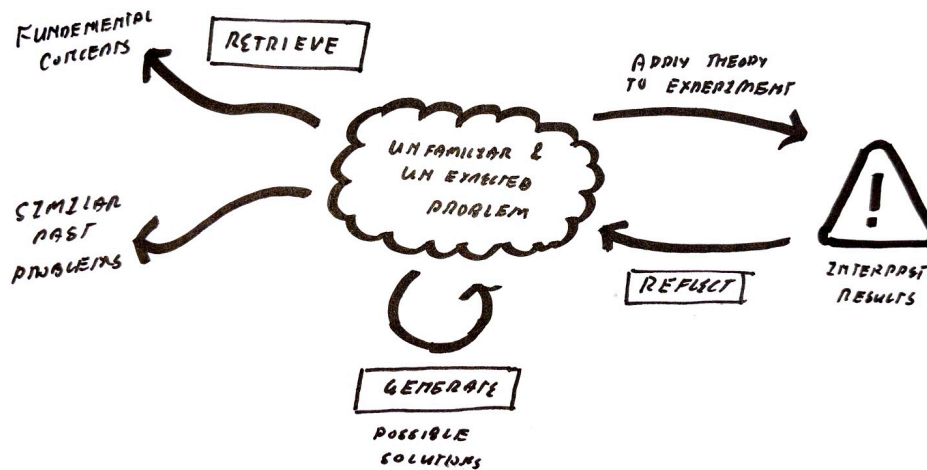 FUNDEMENTAL
CONCEPTS
RETRIEVE
APPLY THEORY
TO EXPERIMENT
UNFAMILIAR &
UN EXPECTED
PROBLEM
!
SIMILAR
PAST
PROBLEMS
REFLECT
INTERPRET
RESULTS
GENERATE
POSSIBLE
SOLUTIONS